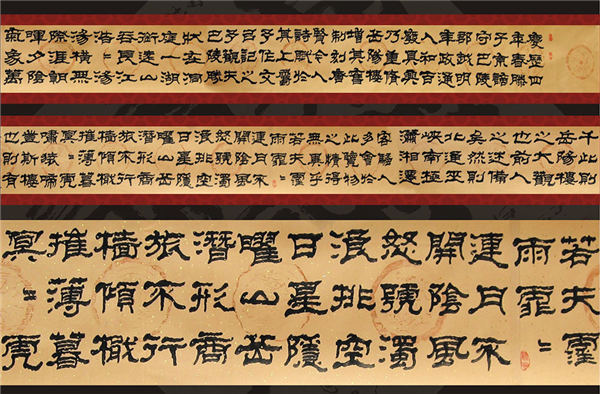 慶歷四
年春滕
子京謫
守巴陵
郡越明
年政通
人和百
廢具興
乃重修
岳陽樓
增其舊
制刻唐
賢今人
詩賦於
其上屬
予作文
以記之
予觀夫
巴陵勝
狀在洞
庭一湖
銜遠山
吞長江
浩〻
湯〻橫無
際涯朝
暉夕陰
氣象萬
千此則
岳陽樓
之大觀
也前人
之述備
矣然則
北通巫
峽南極
瀟湘遷
客騷人
多會於
此覽物
之情得
無異乎
若夫霪
雨霏〻
連月不
開陰風
怒號濁
浪排空
日星隱
曜山岳
潛形商
旅不行
檣傾楫
摧薄暮
冥〻虎
嘯猿啼
登斯樓
也則有
若夫霪
雨霏〻
連月不
開陰風
怒號濁
浪排空
日星隱
曜山岳
潛形商
旅不行
檣傾楫
摧薄暮
冥〻虎